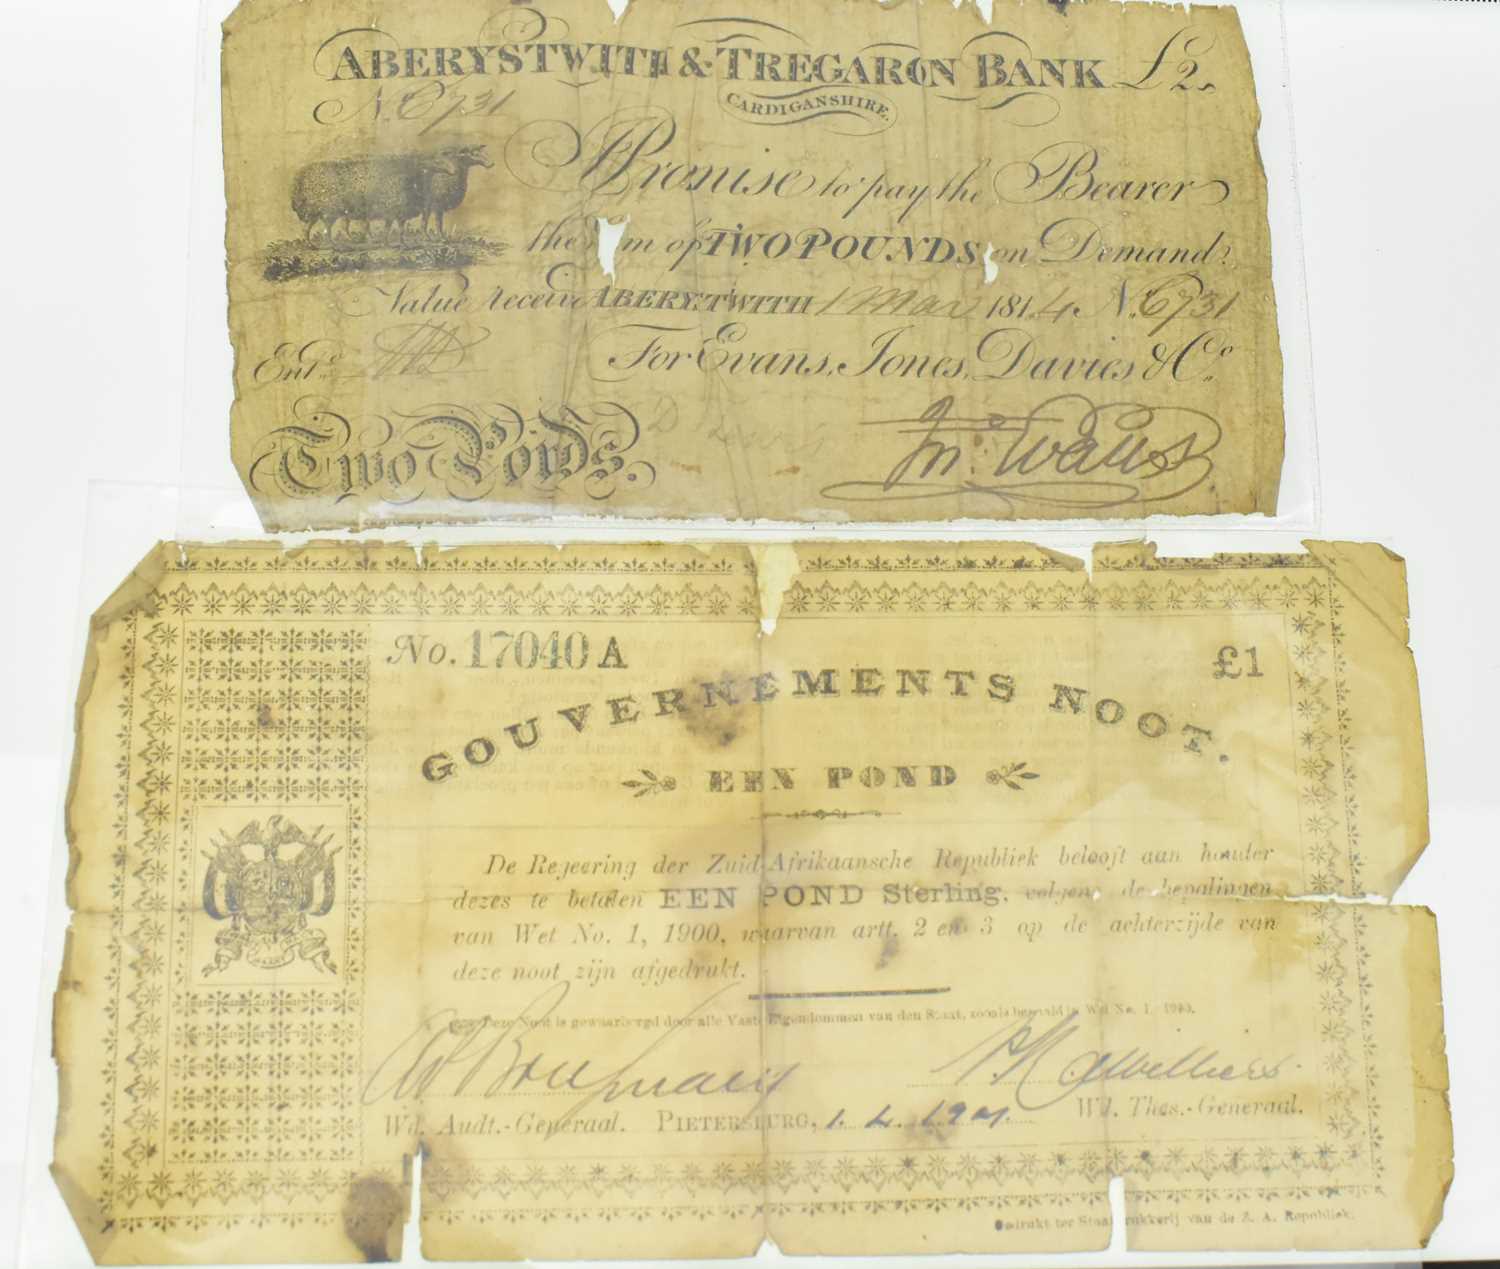 ABERYSTWITH & TREGARON BANK £2.
CARDIGANSHIRE.
No. 6731
I Promise to pay the Bearer
the m of TWO POUNDS on Demand.
Value receiv ABERYSTWITH 1 Mar 1814 No. 6731
Entd. For Evans, Jones, Davies & Co.
Two Pounds. Jn. Evans
No. 17040 A £1
GOUVERNEMENTS NOOT.
EEN POND
De Regeering der Zuid-Afrikaansche Republiek belooft aan houder
dezes te betalen EEN POND Sterling, volgens de bepalingen
van Wet No. 1, 1900, waarvan artt. 2 en 3 op de achterzijde van
deze noot zijn afgedrukt.
Deze Noot is gewaarborgd door alle Vaste Eigendommen van den Staat, zooals bepaald in Wet No. 1, 1900.
Wd. Audt.-Generaal. PIETERSBURG, 1. 4. 1901. Wd. Thes.-Generaal.
Gedrukt ter Staatsdrukkerij van de Z. A. Republiek.